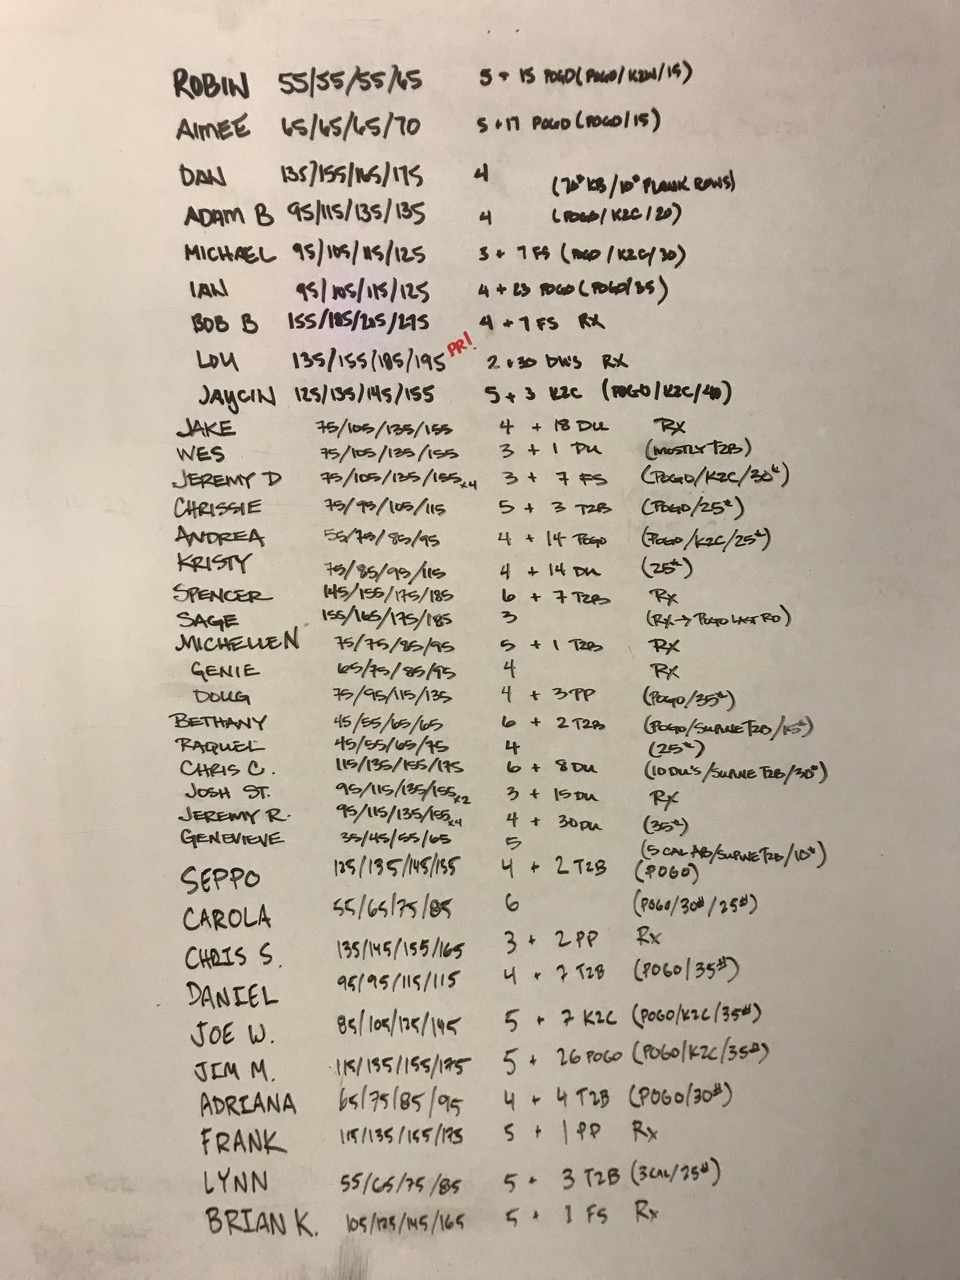 ROBIN 55/55/55/65 5 + 15 POGO (POGO/K2N/15)
AIMEE 65/65/65/70 5 + 17 POGO (POGO/15)
DAN 135/155/165/175 4 (70# KB/10# PLANK ROWS)
ADAM B 95/115/135/135 4 (POGO/K2C/20)
MICHAEL 95/105/115/125 3 + 7 FS (POGO/K2C/30)
IAN 95/105/115/125 4 + 23 POGO (POGO/35)
BOB B 155/185/205/275 4 + 7 FS RX
LOU 135/155/185/195 PR! 2 + 30 DU'S RX
JAYCIN 125/135/145/155 5 + 3 K2C (POGO/K2C/40)
JAKE 75/105/135/155 4 + 18 DU RX
WES 75/105/135/155 3 + 1 DU (MOSTLY T2B)
JEREMY D 75/105/135/155x4 3 + 7 FS (POGO/K2C/30#)
CHRISSIE 75/95/105/115 5 + 3 T2B (POGO/25#)
ANDREA 55/75/85/95 4 + 14 POGO (POGO/K2C/25#)
KRISTY 75/85/95/115 4 + 14 DU (25#)
SPENCER 145/155/175/185 6 + 7 T2B RX
SAGE 155/165/175/185 3 (RX→POGO LAST RD)
MICHELLE N 75/75/85/95 5 + 1 T2B RX
GENIE 65/75/85/95 4 RX
DOUG 75/95/115/135 4 + 3 PP (POGO/35#)
BETHANY 45/55/65/65 6 + 2 T2B (POGO/SUPINE T2B/15#)
RAQUEL 45/55/65/75 4 (25#)
CHRIS C. 115/135/155/175 6 + 8 DU (10 DU'S/SUPINE T2B/30#)
JOSH ST. 95/115/135/155x2 3 + 15 DU RX
JEREMY R. 95/115/135/155x4 4 + 30 DU (35#)
GENEVIEVE 35/45/55/65 5 (5 CAL AB/SUPINE T2B/10#)
SEPPO 125/135/145/155 4 + 2 T2B (POGO)
CAROLA 55/65/75/85 6 (POGO/30#/25#)
CHRIS S. 135/145/155/165 3 + 2 PP Rx
DANIEL 95/95/115/115 4 + 7 T2B (POGO/35#)
JOE W. 85/105/125/145 5 + 7 K2C (POGO/K2C/35#)
JIM M. 115/135/155/175 5 + 26 POGO (POGO/K2C/35#)
ADRIANA 65/75/85/95 4 + 4 T2B (POGO/30#)
FRANK 115/135/155/175 5 + 1 PP Rx
LYNN 55/65/75/85 5 + 3 T2B (3CAL/25#)
BRIAN K. 105/125/145/165 5 + 1 FS Rx